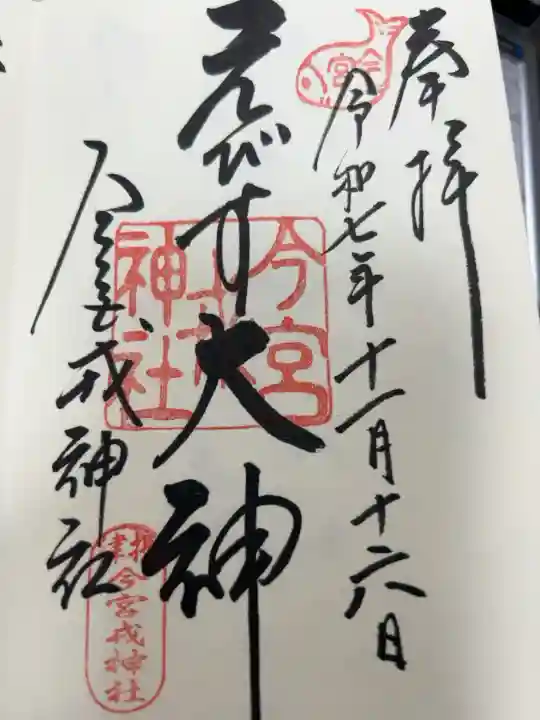 奉拝
今宮
令和七年十一月十六日
えびす大神
今宮
戎
神社
今宮戎神社
摂津
今宮戎神社